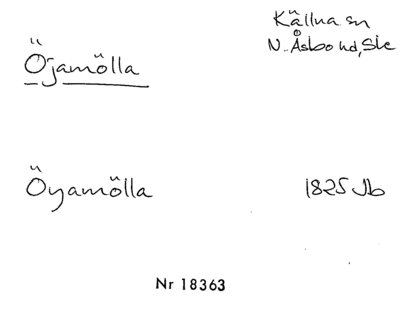 Källna sn
N. Åsbo hd, Ske
Öjamölla
Öyamölla 1825 Jb
Nr 18363